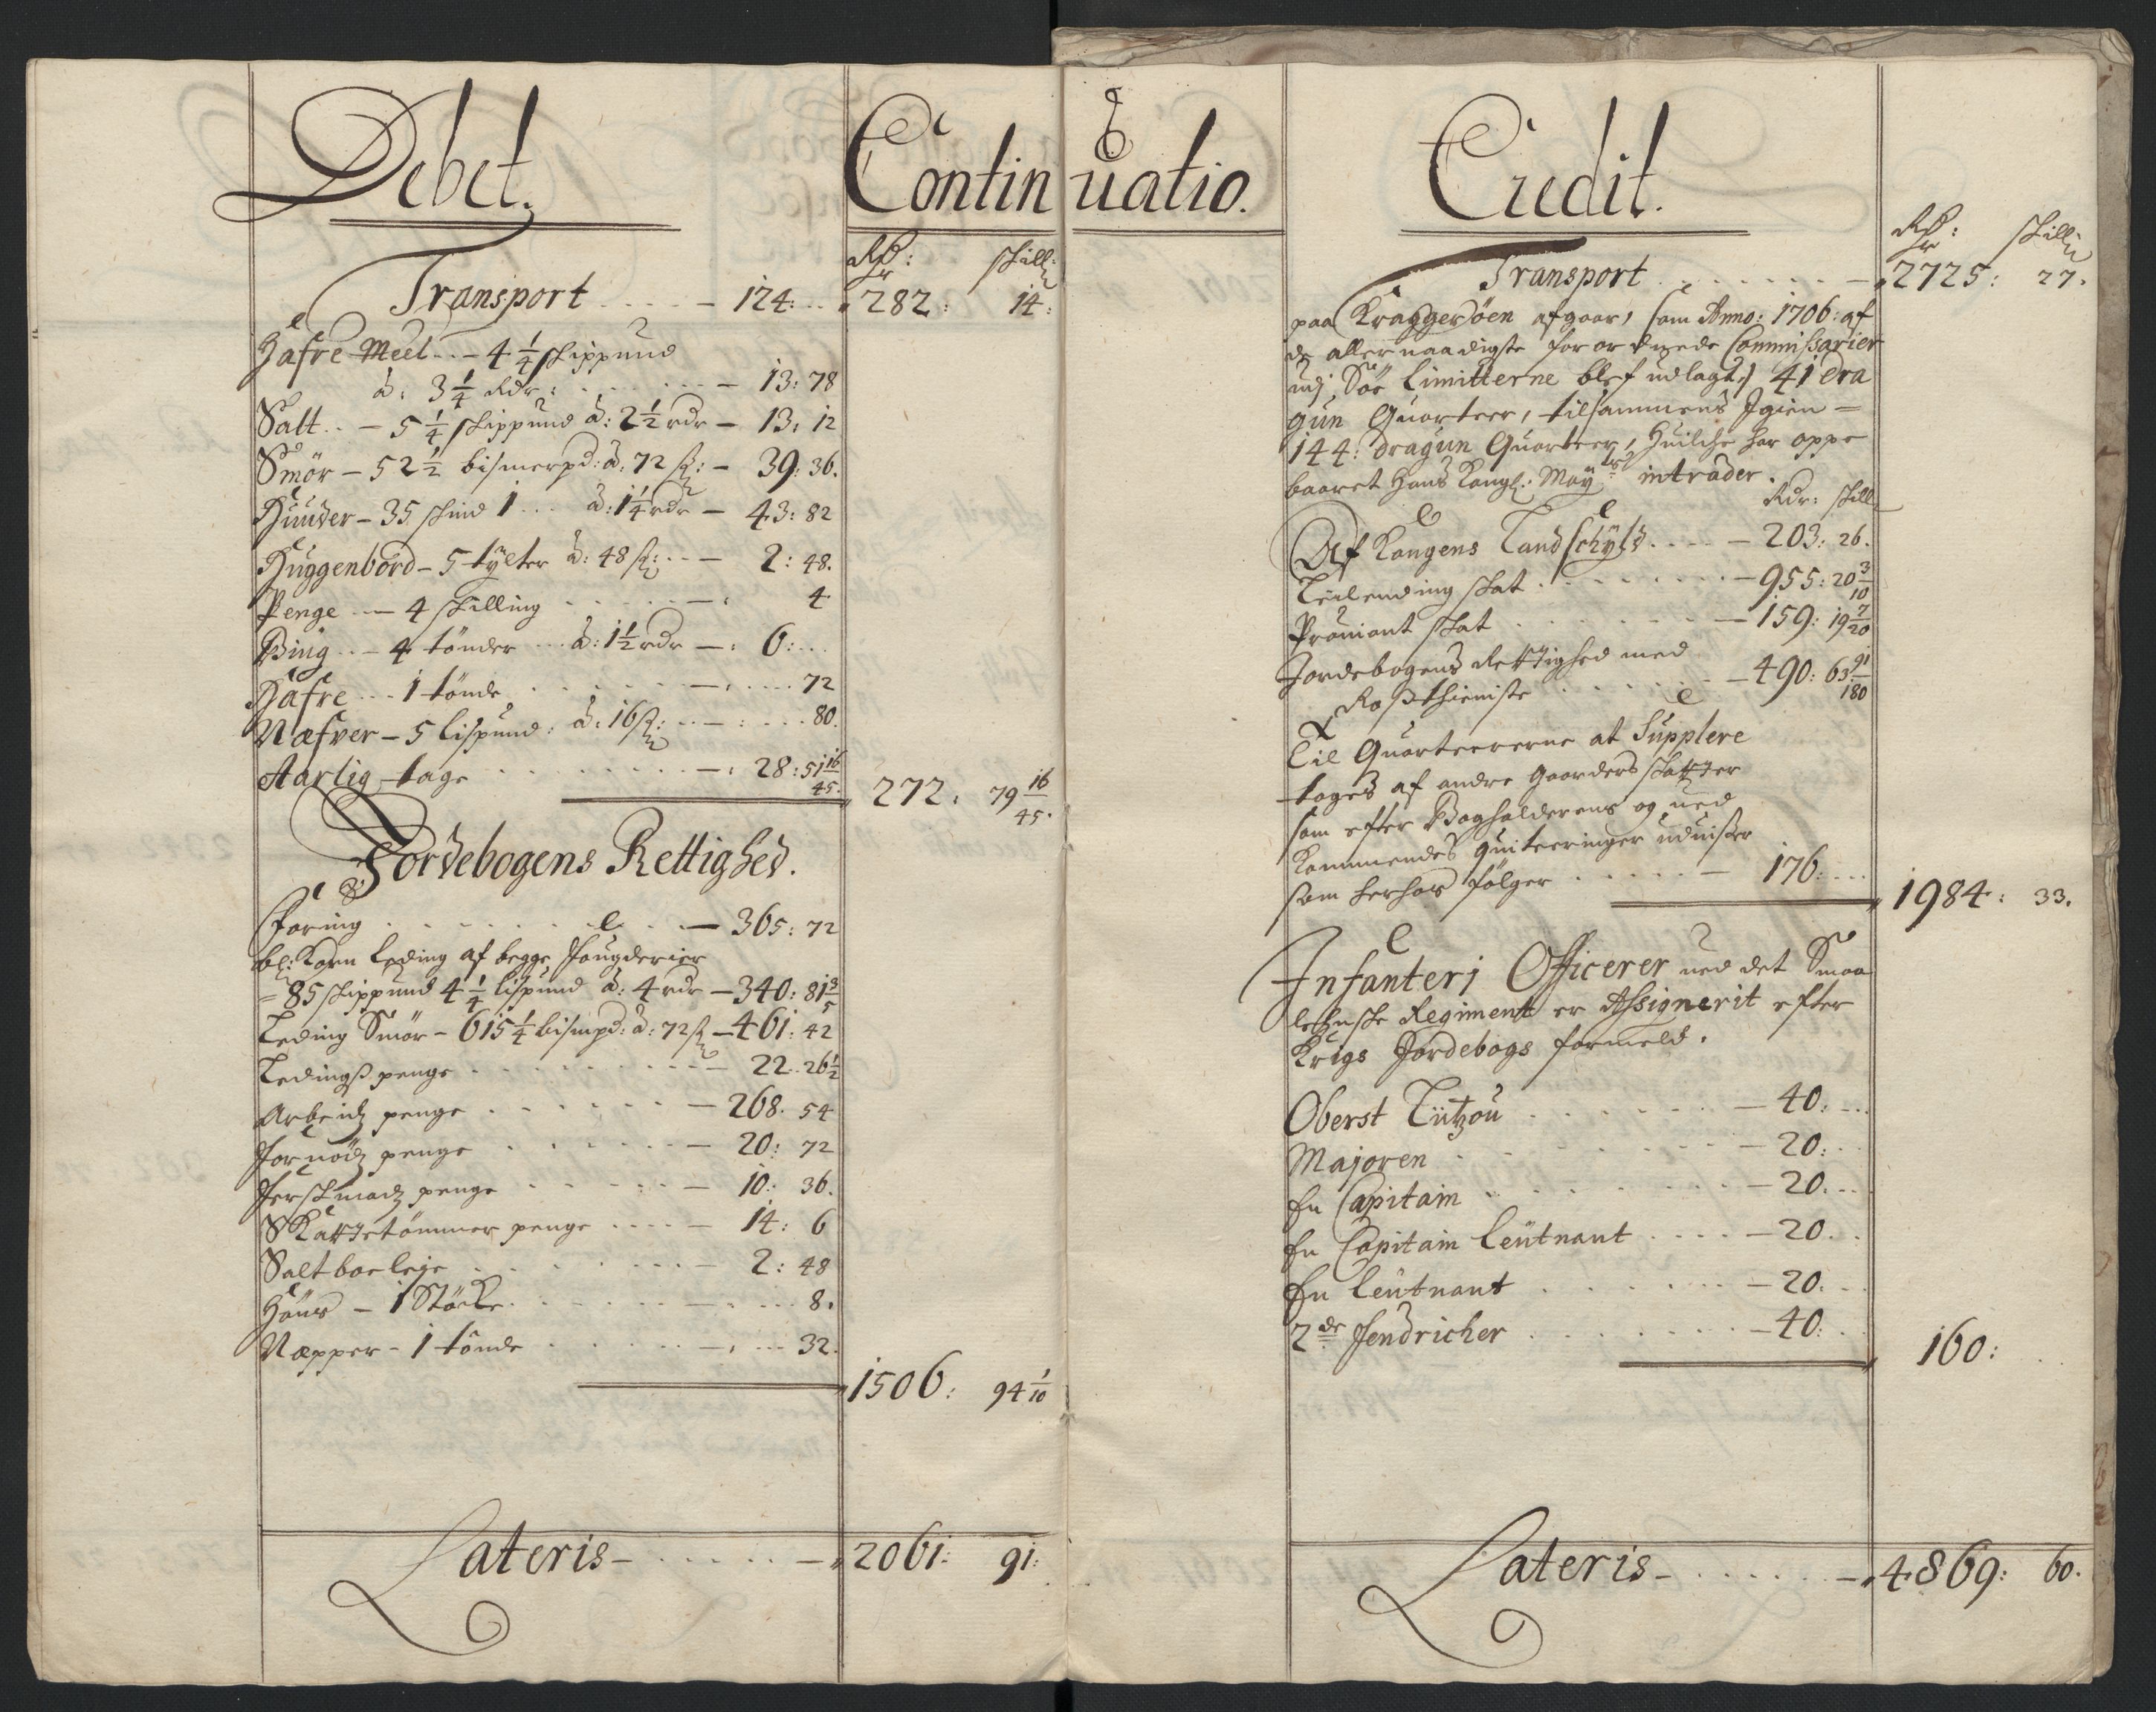 Debet.
Continuatio.
Rdr: skill:
Transport - 124: 282: 14:
Hafre Meel - 4 1/4 skippund
à: 3 1/4 Rdr: - 13: 78
Salt - 5 1/4 skippund à: 2 1/2 rdr - 13: 12
Smör - 52 1/2 bismerpd: à: 72 s: - 39: 36.
Huuder - 35 skind 1 à: 1 1/4 rdr - 43: 82
Huggenbord - 5 tylter à: 48 s: - 2: 48.
Penge - 4 skilling 4
Bing - 4 tönder à: 1 1/2 rdr - 6:
Hafre - 1 tönde 72
Næfver - 5 lispund: à: 16 s: 80.
Aarlig tage - 28: 51 16/45.
272. 79 16/45.
Jordebogens Rettighed.
Foring - 365: 72
bl: Korn Leding af begge Fougderier
= 85 skippund 4 1/4 lispund à: 4 rdr - 340: 81 3/5
Leding Smör - 615 1/4 bismpd: à: 72 s - 461: 42
Ledingß penge - 22. 26 1/2
Arbeidz penge - 268. 54
Fornödz penge - 20: 72
Ferskmadz penge - 10: 36.
Skattetömmer penge - 14: 6
Saltboe leje - 2: 48
Höns - 1 Stöcke 8.
Næpper - 1 tönde 32.
1506: 94 1/10
Lateris - 2061: 91:
Credit.
Rdr: skill:
Transport - 2725: 27.
paa Kraggeröen afgaar, som Anno: 1706: af
de allernaadigste forordnede Commissarier
udj Söe Limitterne blef udlagt,) 41 Dra
gun Quarteer, tilsammens Igien =
144: dragun Quarteer, Huilche har oppe
baaret Hans Kongl: Mayts intrader.
Rdr: skill
Af Kongens Landschyld - 203: 26.
Leilending skat - 955: 20 3/10
Proviant skat - 159: 19 7/20
Jordebogens Rettighed med
Roßthieniste - 490: 63 91/180
Til Quarteererne at Supplere
tages af andre Gaarders skatter
som efter Bogholderens og ved
Kommendes quiteeringer uduißer
som herhos fölger - 176:
1984: 33.
Infanterj Officerer ved det Smaa
lehnske Regiment er Assignerit efter
Krigs Jordebogs formeld.
Oberst Lützou - 40:
Majoren - 20:
En Capitain - 20.
En Capitain Leütnant - 20.
En Leütnant - 20.
2de Fendricher - 40:
160:
Lateris - 4869: 60.